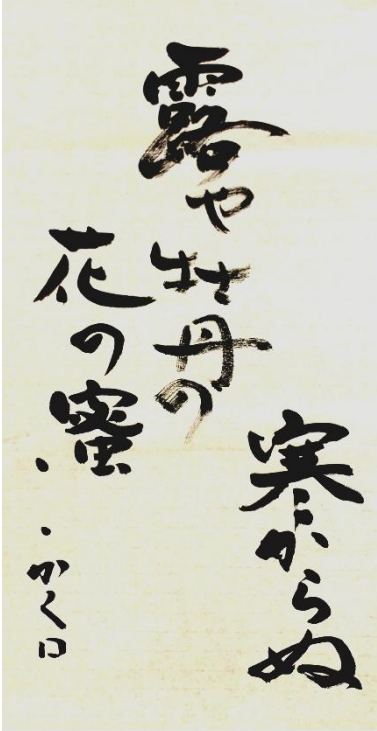 寒からぬ
露や牡丹の
花の蜜